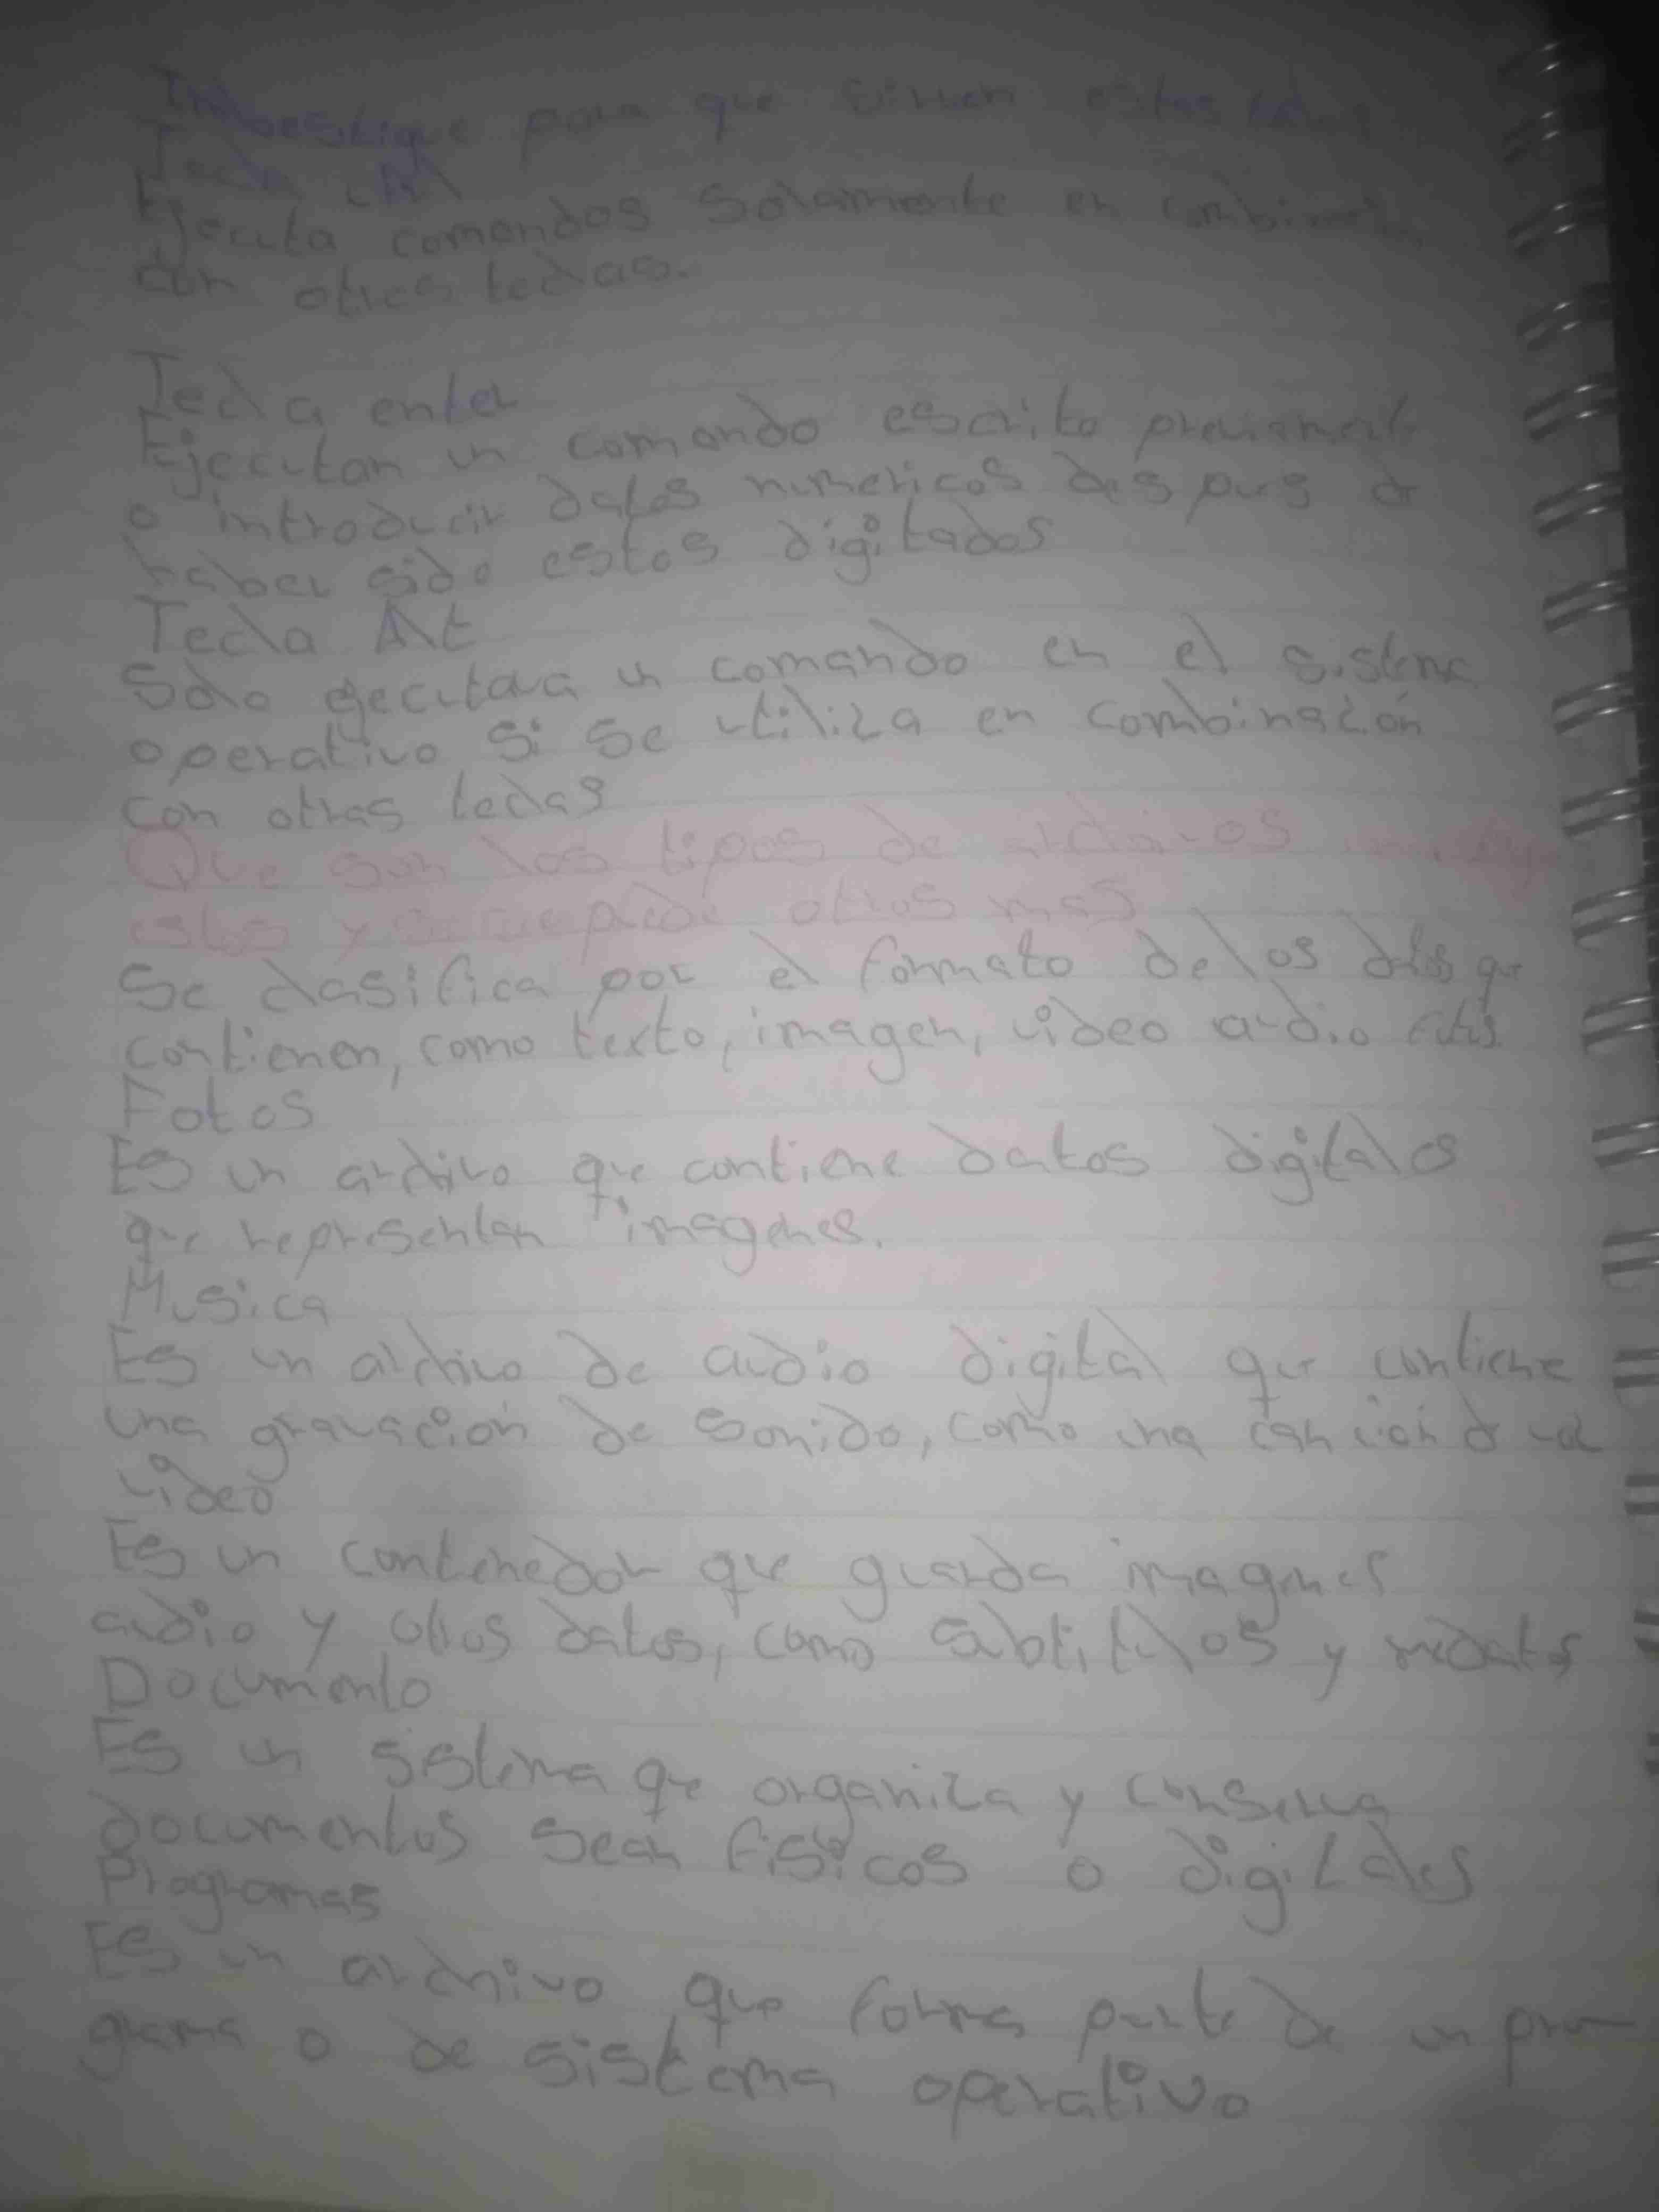 Imbestigue para que sirven estas
Tecla
Ejecuta comandos solamente en
con otras teclas.
Tecla enter
Ejecutan un comando escrito
o introducir datos numericos des pues de
haber sido estos digitados
Tecla Alt
Solo ejecutara un comando en el sistema
operativo si se utiliza en combinación
con otras teclas
Que son los tipos de archivos
estos y otros mas
Se clasifica por el formato de los datos que
contienen, como texto, imagen, video audio
Fotos
Es un archivo que contiene datos digitales
que representan imagenes.
Musica
Es un archivo de audio digital que contiene
una gravación de sonido, como una canción
video
Es un contenedor que guarda imagenes
audio y otros datos, como subtitulos y
Documento
Es un sistema que organiza y conserva
documentos sean fisicos o digitales
Programas
Es un archivo que forma parte de un pro
grama o de sistema operativo